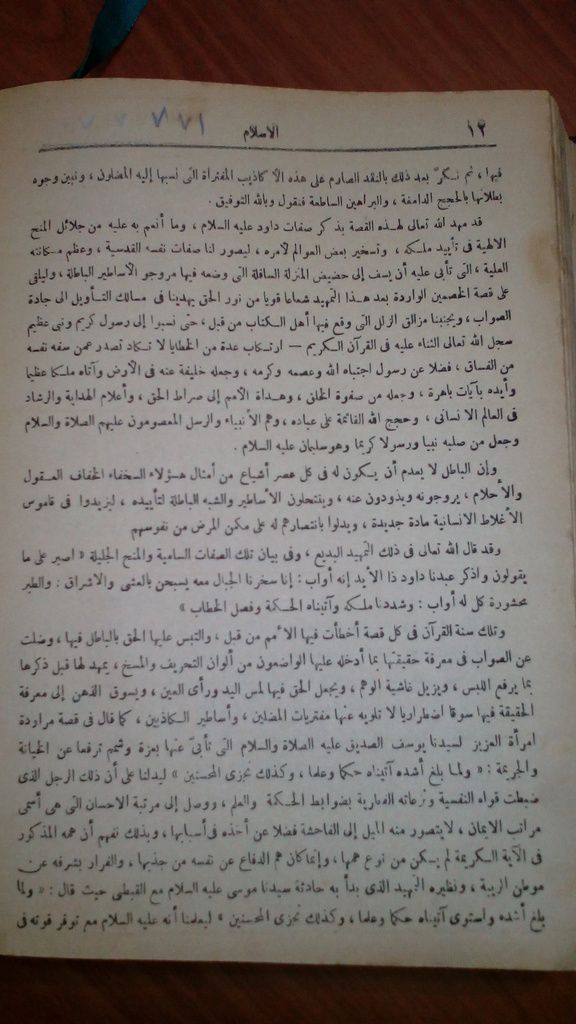 ١٢
الاسلام
٨٧١
فيها ، ثم نكرّ بعد ذلك بالنقد الصارم على هذه الأكاذيب المفتراة التى نسبها إليه المضلون ، ونبين وجوه
بطلانها بالحجج الدامغة ، والبراهين الساطعة فنقول وبالله التوفيق .
قد مهد الله تعالى لهذه القصة بذكر صفات داود عليه السلام ، وما أنعم به عليه من جلائل المنح
الالهية فى تأييد ملكه ، وتسخير بعض العوالم لأمره ، ليصور لنا صفات نفسه القدسية ، وعظم مكانته
العلية ، التى تأبى عليه أن يسف إلى حضيض المنزلة السافلة التى وضعه فيها مروجو الأساطير الباطلة ، وليلقى
على قصة الخصمين الواردة بعد هذا التمهيد شعاعا قويا من نور الحق يهدينا فى مسالك التأويل الى جادة
الصواب ، ويجنبنا مزالق الزلل التى وقع فيها أهل الكتاب من قبل ، حتى نسبوا إلى رسول كريم ونبى عظيم
سجل الله تعالى الثناء عليه فى القرآن الكريم — ارتكاب عدة من الخطايا لا تكاد تصدر عمن سفه نفسه
من الفساق ، فضلا عن رسول اجتباه الله وعصمه وكرمه ، وجعله خليفة عنه فى الأرض وآتاه ملكا عظيما
وأيده بآيات باهرة ، وجعله من صفوة الخلق ، وهداة الأمم إلى صراط الحق ، وأعلام الهداية والرشاد
فى العالم الانسانى ، وحجج الله القائمة على عباده ، وهم الأنبياء والرسل المعصومون عليهم الصلاة والسلام
وجعل من صلبه نبيا ورسولا كريما وهو سليمان عليه السلام .
وإن الباطل لا يعدم أن يكون له فى كل عصر أشياع من أمثال هؤلاء السخفاء الخفاف العقول
والأحلام ، يروجونه ويذودون عنه ، وينتحلون الأساطير والشبه الباطلة لتأييده ، ليزيدوا فى قاموس
الأغلاط الانسانية مادة جديدة ، ويدلوا بانتصارهم له على مكن المرض من نفوسهم
وقد قال الله تعالى فى ذلك التمهيد البديع ، وفى بيان تلك الصفات السامية والمنح الجليلة « اصبر على ما
يقولون واذكر عبدنا داود ذا الأيد إنه أواب : إنا سخرنا الجبال معه يسبحن بالعشى والاشراق : والطير
محشورة كل له أواب : وشددنا ملكه وآتيناه الحكمة وفصل الخطاب »
وتلك سنة القرآن فى كل قصة أخطأت فيها الأمم من قبل ، والتبس عليها الحق بالباطل فيها ، وضلت
عن الصواب فى معرفة حقيقتها بما أدخله عليها الواضعون من ألوان التحريف والمسخ ، يمهد لها قبل ذكرها
بما يرفع اللبس ، ويزيل غاشية الوهم ، ويجعل الحق فيها لمس اليد ورأى العين ، ويسوق الذهن إلى معرفة
الحقيقة فيها سوقا اضطراريا لا تلويه عنها مفتريات المضلين ، وأساطير الكاذبين ، كما قال فى قصة مراودة
امرأة العزيز لسيدنا يوسف الصديق عليه الصلاة والسلام التى تأبىّ عنها بعزة وشمم ترفعا عن الخيانة
والجريمة : « ولما بلغ أشده آتيناه حكما وعلما ، وكذلك نجزى المحسنين » ليدلنا على أن ذلك الرجل الذى
ضبطت قواه النفسية ونزعاته الغرارية بضوابط الحكمة والعلم ، ووصل إلى مرتبة الاحسان التى هى أسمى
مراتب الايمان ، لا يتصور منه الميل إلى الفاحشة فضلا عن أخذه فى أسبابها ، وبذلك نفهم أن همه المذكور
فى الآية الكريمة لم يكن من نوع همها ، وإنما كان هم الدفاع عن نفسه من جذبها ، والفرار بشرفه عن
موطن الريبة ، ونظيره التمهيد الذى بدأ به حادثة سيدنا موسى عليه السلام مع القبطى حيث قال : « ولما
بلغ أشده واستوى آتيناه حكما وعلما ، وكذلك نجزى المحسنين » ليعلمنا أنه عليه السلام مع توفر قوته فى